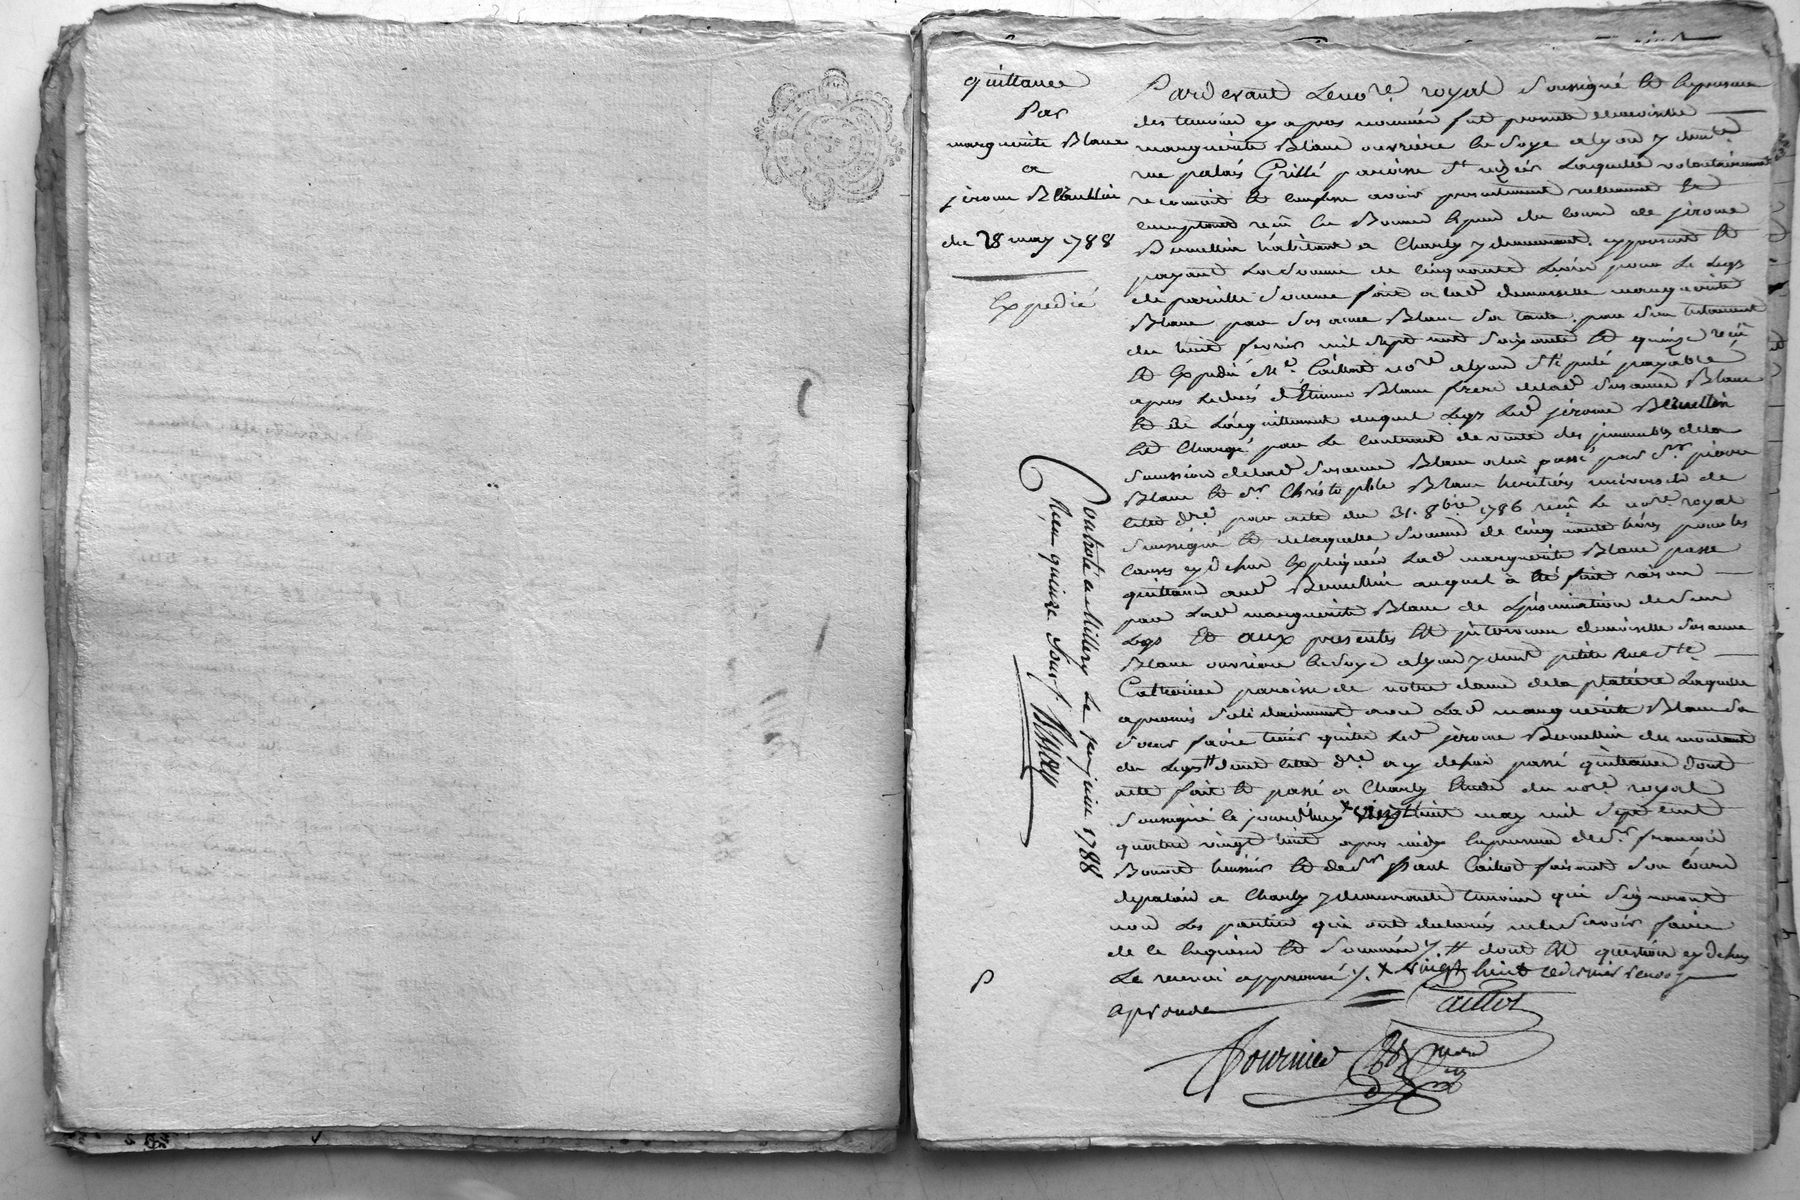 quittance
Par
marguerite Blanc
a
jérome Bluettin
du 28 may 1788
Expedié
Pardevant Le no.re royal Soussigné Et En presence
des temoins cy apres nommés fut presente demoiselle
marguerite Blanc ouvriere En Soye a lyon y dem.te
rue palais Grillé paroisse St nizier Laquelle volontairement
reconnoit Et Confesse avoir presentement reellement Et
Comptant reçu En Bonnes Especes du Cours de jérome
habitant a Charly y demeurant, cy present Et
payant La Somme de Cinquante Livres pour Le Legs
de pareille Somme fait a lad demoiselle marguerite
Blanc par Susanne Blanc Sa tante, par Son testament
du huit fevrier mil Sept cent Soixante Et quinze reçu
Et Expedié Me. Caillot no.re a lyon Stipulé payable
apres Le deces d'Etienne Blanc frere de lad Susanne Blanc
Et de L'acquittement duquel Legs Led jérome
Est Chargé par Le Contract de vente des jmmeubles de la
Succession de lad Susanne Blanc a lui passé par Sr. pierre
Blanc Et Sr Christophle Blanc heritiers universels de
lad dre. par acte du 31. 8bre 1786 reçu Le no.re royal
Soussigné Et de laquelle Somme de Cinquante livres pour les
Causes cy dessus Expliquées Lad marguerite Blanc passe
quittance aud auquel a Eté fait raison
par Lad marguerite Blanc de de Son
Legs Et aux presentes Est jntervenue demoiselle Susanne
Blanc ouvriere En Soye a lyon y demt petite Rue Ste
Catherine paroisse de notre dame de la platiere Laquelle
a promis Solidairement avec Lad marguerite Blanc Sa
Soeur faire tenir quitte Led jerome du montant
du Legs # dont lad dre a cy dessus passé quittance dont
acte fait Et passé a Charly Etude du no.re royal
Soussigné le jourd'huy x vingt huit may mil Sept cent
quatre vingt huit apres midy En presence de Sr. francois
Bonnet huissier Et de Sr paul Caillot faisant Son Cours
de palais a Charly y demeurants temoins qui Signeront
non Les parties qui ont declarés ne le Scavoir faire
de ce Enquises Et Sommées #. dont Est question cy dessus
Le renvoi approuvé. x vingt huit ce dernier renvoy
aprouvé
Caillot
Fournier
Controlé a Millery Le juin 1788
Reçu quinze Sous